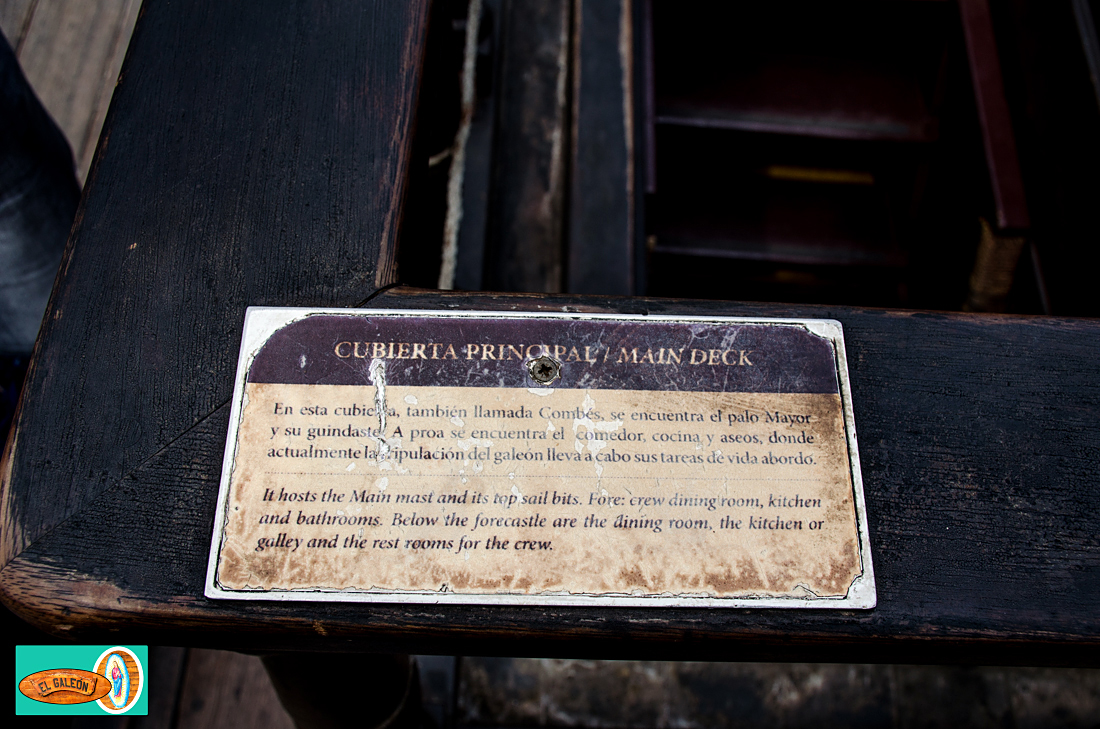 CUBIERTA PRINCIPAL / MAIN DECK
En esta cubierta, también llamada Combés, se encuentra el palo Mayor
y su guindaste. A proa se encuentra el comedor, cocina y aseos, donde
actualmente la tripulación del galeón lleva a cabo sus tareas de vida abordo.
It hosts the Main mast and its top sail bits. Fore: crew dining room, kitchen
and bathrooms. Below the forecastle are the dining room, the kitchen or
galley and the rest rooms for the crew.
EL GALEÓN